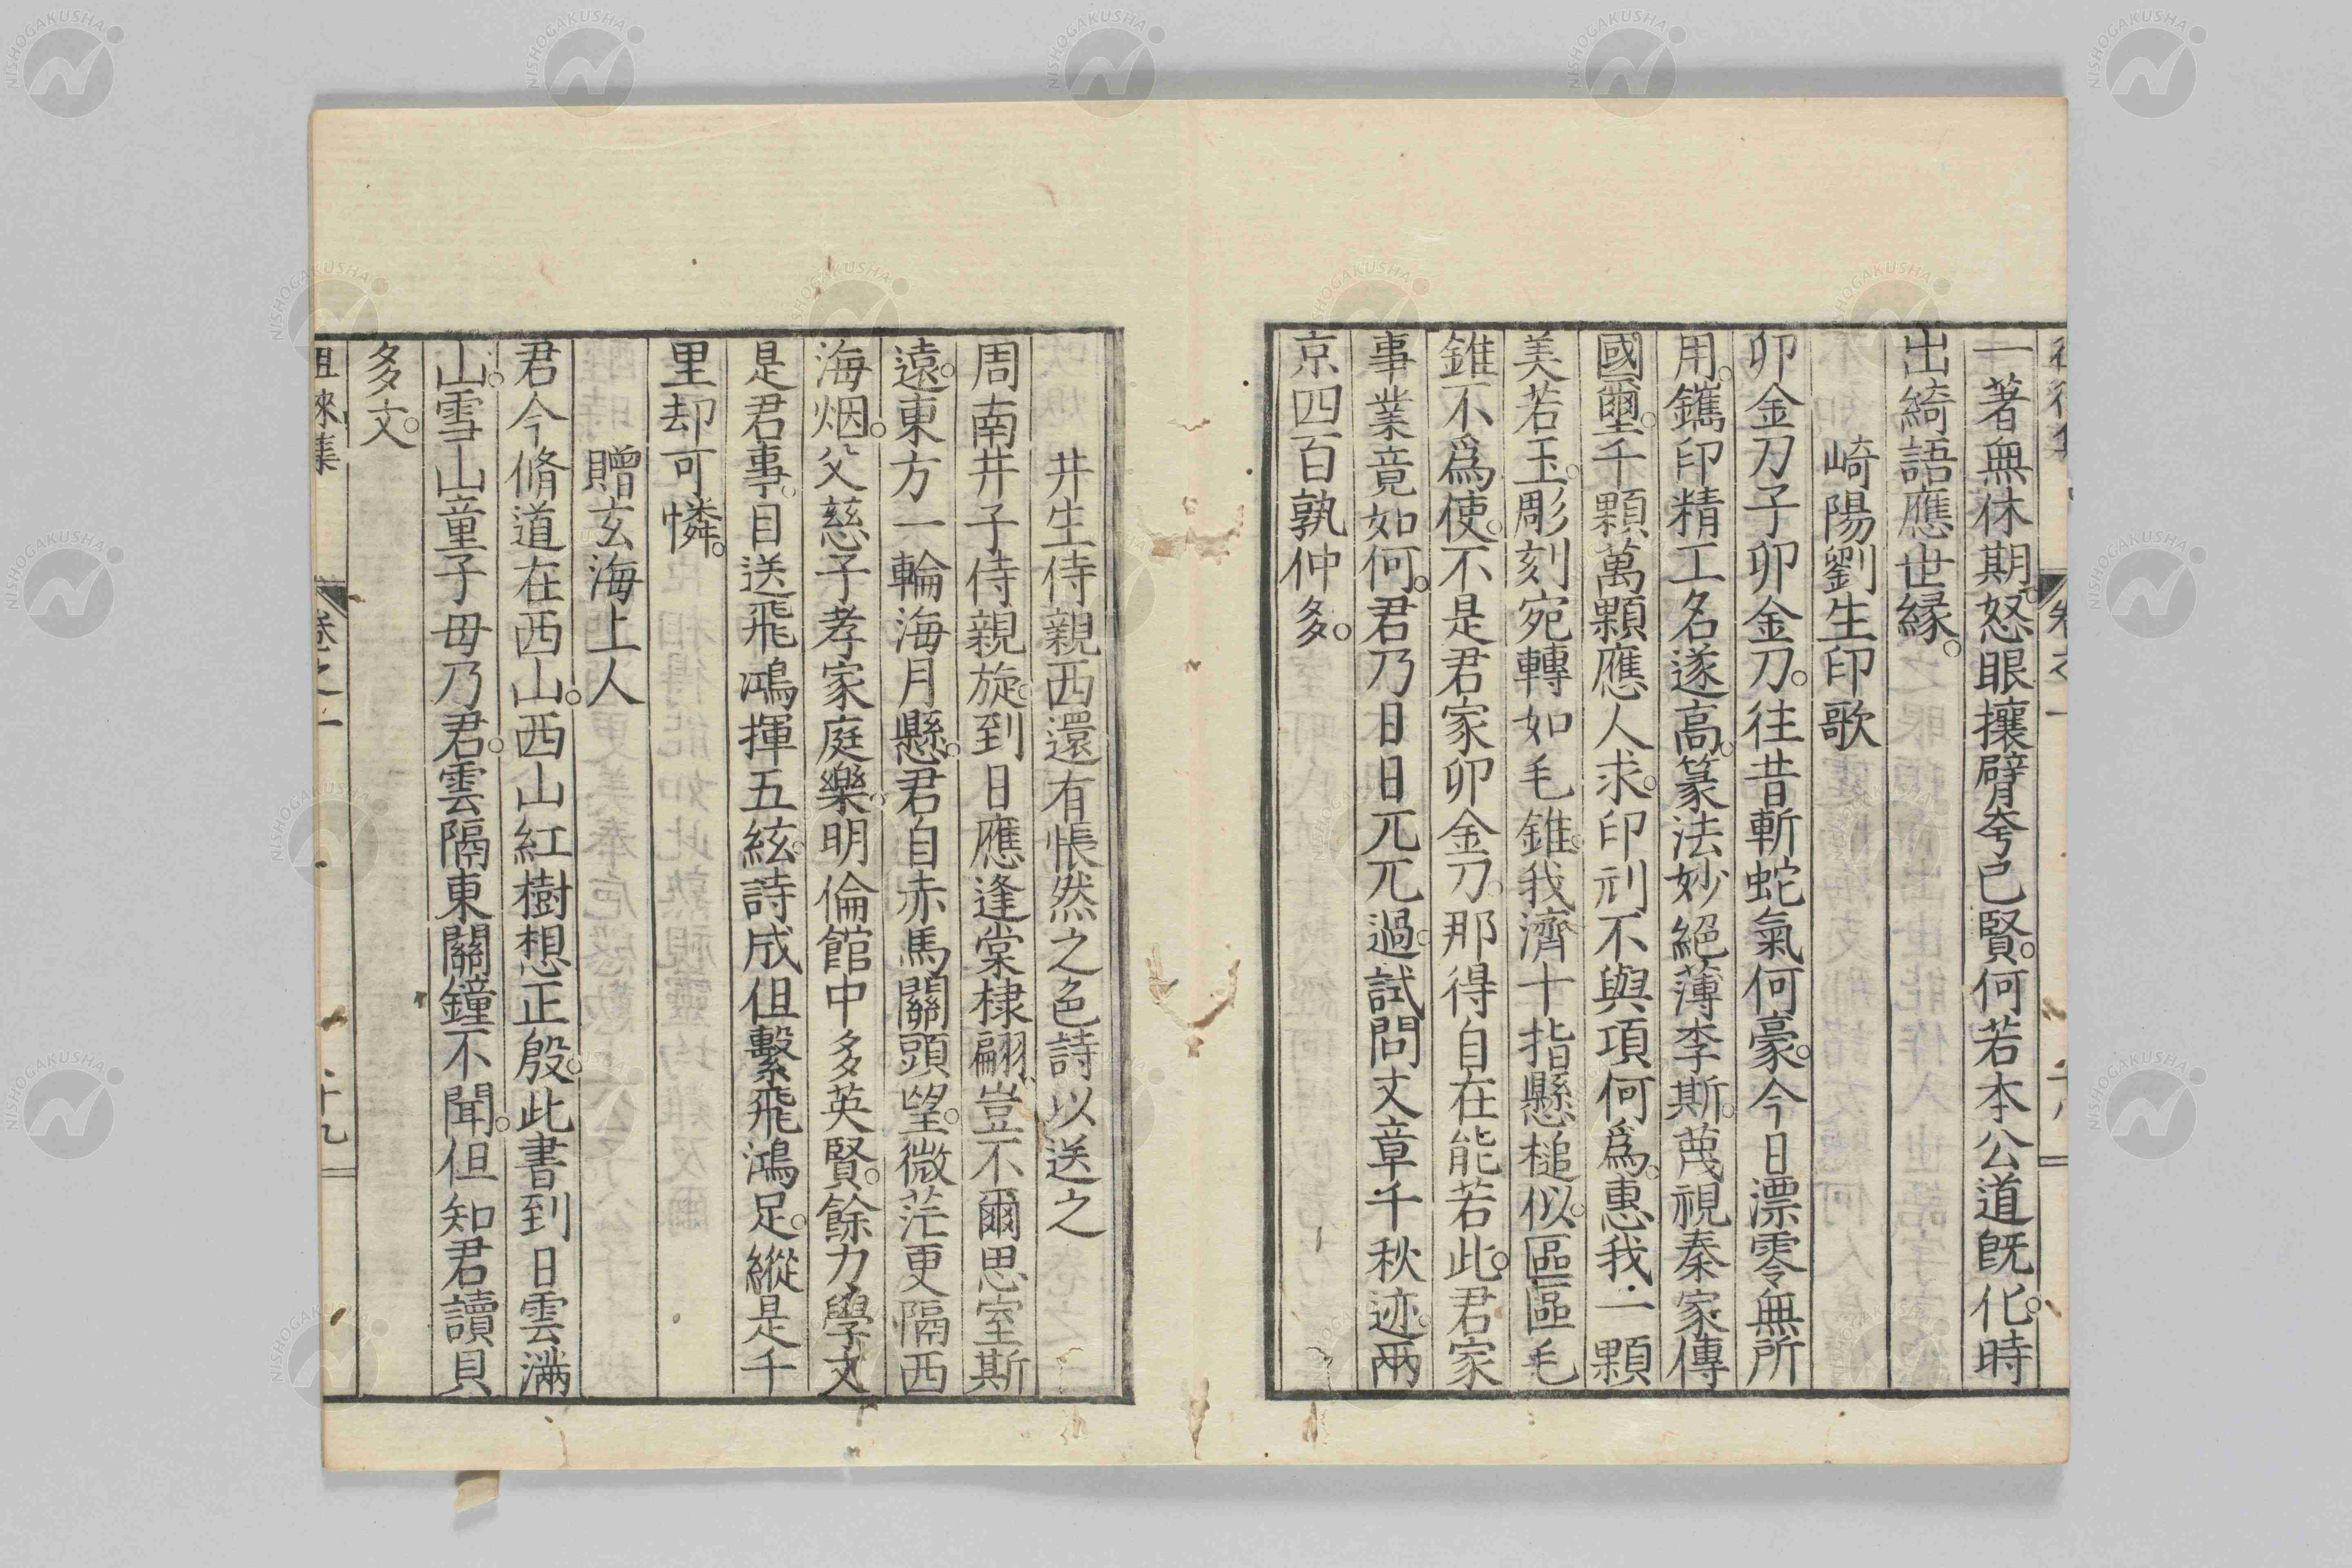 一著無休期。怒眼攘臂夸己賢。何若本公道既化。時
出綺語應世縁。
崎陽劉生印歌
卯金刀子卯金刀。往昔斬蛇氣何豪。今日漂零無所
用。鐫印精工名遂高。篆法妙絕薄李斯。蔑視秦家傳
國璽。千顆萬顆應人求。印刓不與項何爲。惠我一顆
美若玉。彫刻宛轉如毛錐。我濟十指懸槌似。區區毛
錐不爲使。不是君家卯金刀。那得自在能若此。君家
事業竟如何。君乃日日兀兀過。試問文章千秋迹。兩
京四百孰仲多。
井生侍親西還有悵然之色詩以送之
周南井子侍親旋。到日應逢棠棣翩。豈不爾思室斯
遠。東方一輪海月懸。君自赤馬關頭望。微茫更隔西
海烟。父慈子孝家庭樂。明倫館中多英賢。餘力學文
是君事。目送飛鴻揮五絃。詩成但繫飛鴻足。縱是千
里却可憐。
贈玄海上人
君今脩道在西山。西山紅樹想正殷。此書到日雲滿
山。雪山童子毋乃君。雲隔東關鐘不聞。但知君讀貝
多文。
徂徠集 卷之一 十九